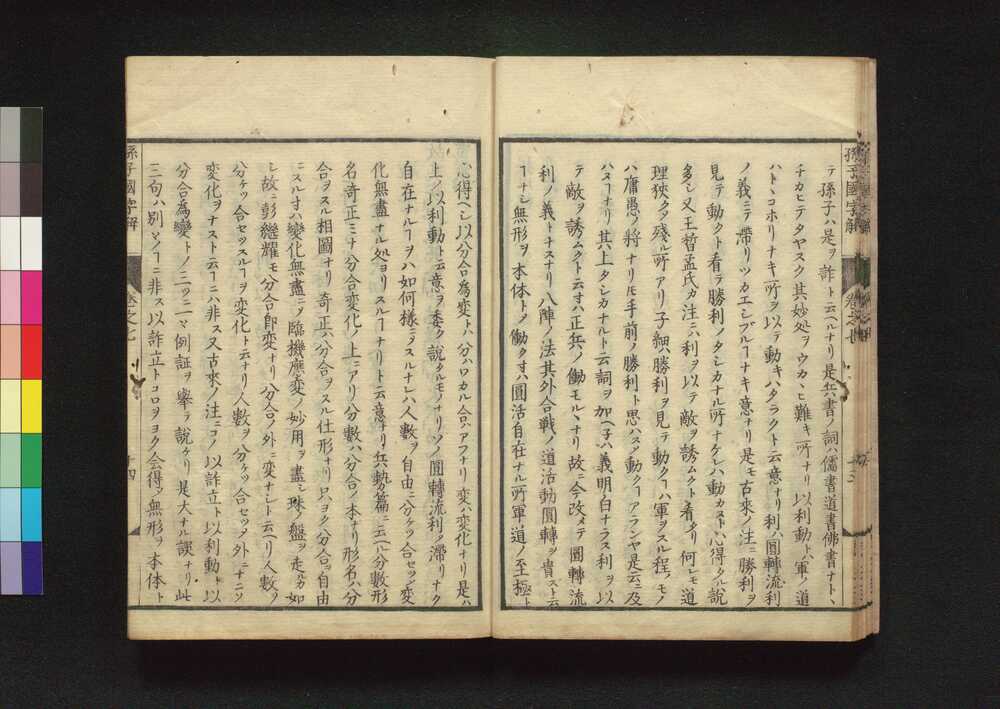 孫子國字解
テ孫子ハ是ヲ詐ト云ヘルナリ是兵書ノ詞ハ儒書道書佛書ナトヽ
チカヒテタヤスク其妙処ヲウカヽヒ難キ所ナリ以利動トハ軍ノ道
ハトヽコホリナキ所ヲ以テ動キハタラクト云意ナリ利ハ圓轉流利
ノ義ニテ滯リツカエシブルヿナキ意ナリ是モ古來ノ注ニ勝利ヲ
見テ動クト看テ勝利ノタシカナル所ナケレハ動カスト心得タル説
多シ又王晳孟氏カ注ニハ利ヲ以テ敵ヲ誘ムクト看タリ何レモ道
理狹クタヽ殘ル所アリ子細ハ勝利ヲ見テ動クヿハ軍ヲスル程ノモノ
ハ庸愚ノ將ナリ𪜈手前ノ勝利ト思ハスメ動クヿアランヤ是云ニ及
ハスヿナリ其上タシカナルト云詞ヲ加ヘ子ハ義明白ナラス利ヲ以
テ敵ヲ誘ムクト云寸ハ正兵ノ働モルヽナリ故ニ今改メテ圓轉流
利ノ義トナスナリ八陣ノ法其外合戰ノ道活動圓轉ヲ貴スト云
ヿナシ無形ヲ本体トメ働クオハ圓活自在ナル所軍道ノ至極ト
心得ヘシ以分合為変トハ分ハワカル合ハアフナリ変ハ変化ナリ是ハ
上ノ以利動ト云意ヲ委ク説タルモノナリソノ圓轉流利ノ滯リナク
自在ナルヿヲハ如何樣ニヌスルナレハ人數ヲ自由ニ分ケツ合セツシテ変
化無盡ナル処ヨリスルヿナリト云意ナリ兵勢篇ニ云ヘル分數形
名奇正ミナ分合変化ノ上ニアリ分數ハ分合ノ本ナリ形名ハ分
合ヲスル相圖ナリ奇正ハ分合ヲスル仕形ナリ只ヨク分合ヲ自由
ニスルオハ變化無盡ニメ臨機應変ノ妙用ヲ盡シ珠ノ盤ヲ走ルカ如
シ故ニ彭繼耀モ分合即変ナリ分合ノ外ニ変ナシト云ヘリ人數ヲ
分ケツ合セツスルヿヲ変化ト云ナリ人數ヲ分ケツ合セツメ外ニナニソ
変化ヲナスト云ヿニハ非ス又古來ノ注ニコノ以詐立ト以利動ト以
分合為變トノ三ツニ一々例証ヲ擧テ説ケリ是大ナル誤ナリ此
三句ハ別々ノヿニ非ス以詐立トコロヲヨク会得メ無形ヲ本体ト
孫子國字解
卷之七
十四